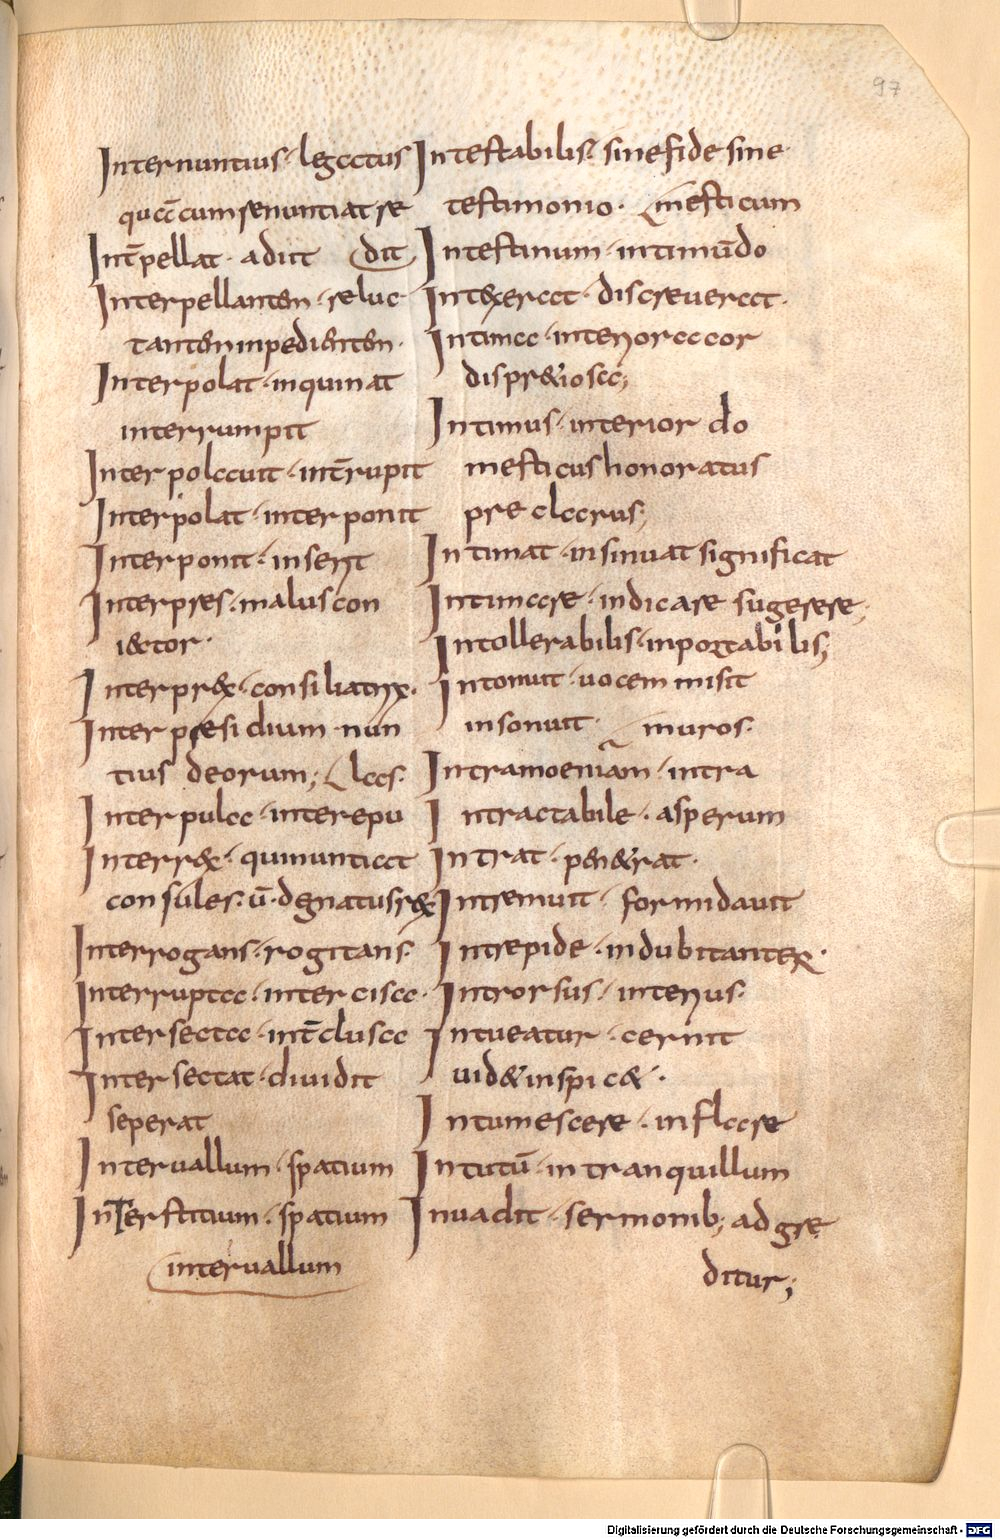 97
Internuntius · legatus
quā cumsenuntiat se
Int̄pellat · adiit dit
Interpellantem · reluc
tantem inpedientem ·
Interpolat · inquinat
interrumpit
Interpolauit · int̄rupit
Interpolat · interponit
Interponit · inserit
Interpres · malus con
iector ·
Interprex · consiliatrix ·
Interpresidium · nun
tius deorum; las ·
Interpula · interepu
Interrex · qui nuntiat
consules · ū · dgnatus rex
Interrogans · rogitans ·
Interrupta · intercisa ·
Intersecta · int̄clusa
Intersectat · diuidit
seperat
Interuallum · spatium
Interstitium · spatium
interuallum
Intestabilis · sine fide sine
testimonio · mesticum
Intestinum · intimū do
Intexerat · discreuerat ·
Intima · interiora cor
dis pretiosa;
Intimus · interior do
mesticus honoratus
preclarus;
Intimat · insinuat significat
Intimare · indicare sugerere;
Intollerabilis · inportabilis;
Intonuit · uocem misit
insonuit · muros ·
Intramoeniam · intra
Intractabile · asperum
Intrat · penetrat ·
Intremuit · formidauit
Intrepide · indubitanter ·
Introrsus · interius ·
Intueatur · cernit
uidet inspicet ·
Intumescere · inflare
Intutū · intranquillum
Inuadit · sermonib; adgre
ditur;
Digitalisierung gefördert durch die Deutsche Forschungsgemeinschaft - DFG